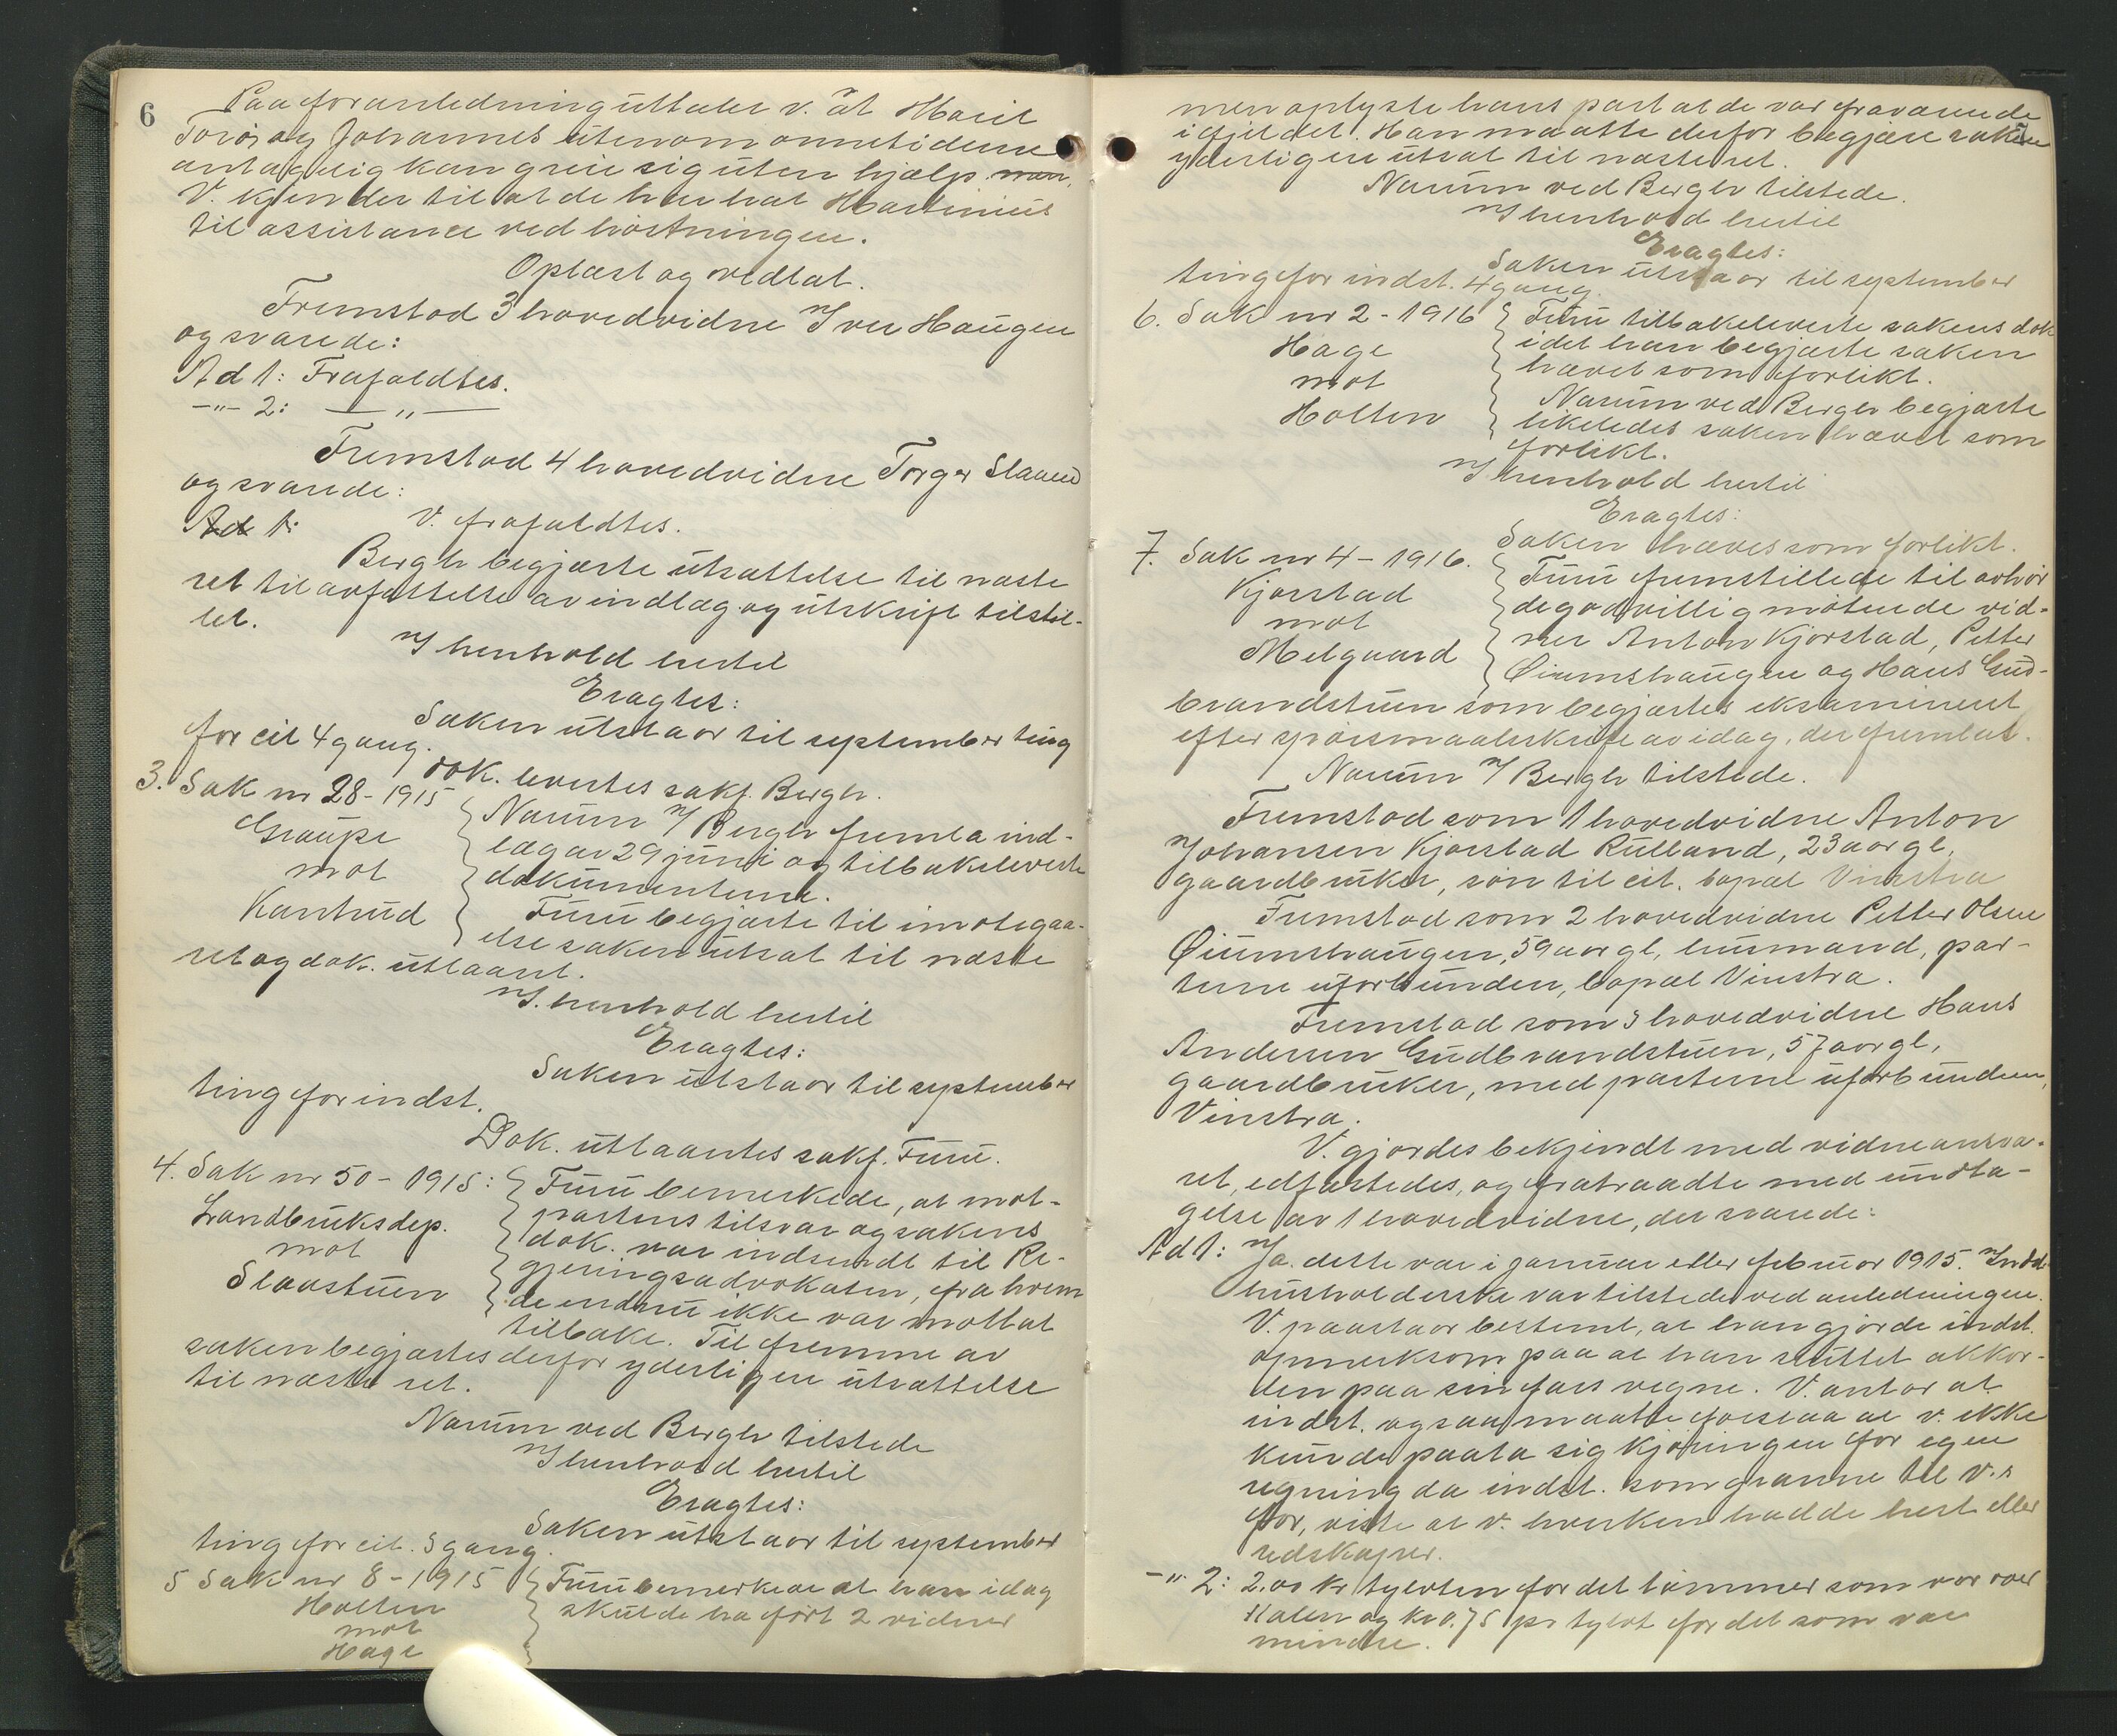 6
Paa foranledning uttaler v. at Marit
Torø og Johannes utenom onnetiderne
antagelig kan greie sig uten hjælp
V. kjender til at de har hat Martinius
til assistance ved høstningen.
Oplæst og vedtat.
Fremstod 3 hovedvidne Iver Haugen
og svarede:
Ad 1: Frafaldtes.
-"- 2: — " —
Fremstod 4 hovedvidne Torger Slaaen
og svarede:
Ad 1: V. frafaldtes.
Bergh begjærte utsættelse til næste
ret til avfattelse av indlæg og utskrift tilstil-
let.
I henhold hertil
Eragtes:
Saken utstaar til september ting
for cit 4 gang.
Dok. levertes sakf. Bergh.
3. Sak nr 28 - 1915
Graupe
mot
Kantrud
Narum v/ Bergh fremla ind-
læg av 29 juni og tilbakeleverte
dokumenterne.
Furu begjærte til imøtegaa-
else saken utsat til næste
ret og dok. utlaant.
I henhold hertil
Eragtes:
Saken utstaar til september
ting for indst.
Dok. utlaantes sakf. Furu.
4. Sak nr 50 - 1915:
Landbruksdep.
mot
Slaastuen
Furu bemerkede, at mot-
partens tilsvar og sakens
dok. var indsendt til Re-
gjeringsadvokaten, fra hvem
de endnu ikke var mottat
tilbake. Til fremme av
saken begjærtes derfor yderligere utsættelse
til næste ret.
Narum ved Bergh tilstede
I henhold hertil
Eragtes:
Saken utstaar til september
ting for cit. 3 gang.
5 Sak nr 8 - 1915
Holten
mot
Hage
Furu bemerkede at han idag
skulde ha ført 2 vidner
men oplyste hans part at de var fraværende
i fjeldet. Han maatte derfor begjære saken
yderligere utsat til næste ret.
Narum ved Bergh tilstede.
I henhold hertil
Eragtes:
Saken utstaar til september
ting for indst. 4 gang.
6. Sak nr 2 - 1916
Hage
mot
Holten
Furu tilbakeleverte sakens dok
idet han begjærte saken
hævet som forlikt.
Narum ved Bergh begjærte
likeledes saken hævet som
forlikt.
I henhold hertil
Eragtes:
Saken hæves som forlikt.
7. Sak nr 4 - 1916.
Kjørstad
mot
Melgaard
Furu fremstillede til avhør
de godvillig møtende vid-
ner Anton Kjørstad, Petter
Øiumshaugen og Hans Gud-
brandstuen som begjærtes eksaminert
efter spørsmaalsskrift av idag, der fremlat.
Narum v/ Bergh tilstede.
Fremstod som 1 hovedvidne Anton
Johansen Kjørstad Rulland, 23 aar gl,
gaardbruker, søn til cit. bopæl Vinstra
Fremstod som 2 hovedvidne Petter Olsen
Øiumshaugen, 59 aar gl, husmand, par-
terne uforbunden, bopæl Vinstra.
Fremstod som 3 hovedvidne Hans
Andersen Gudbrandstuen, 57 aar gl,
gaardbruker, med parterne uforbunden,
Vinstra.
V. gjordes bekjendt med vidneansva-
ret, edfæstedes, og fratraadte med undta-
gelse av 1 hovedvidne, der svarede:
Ad 1: Ja. dette var i januar eller februar 1915. Indst.
husholderske var tilstede ved anledningen.
V. paastaar bestemt, at han gjorde indst.
opmerksom paa at han sluttet akkor-
den paa sin fars vegne. V. antar at
indst. ogsaa maatte forstaa at v. ikke
kunde paata sig kjøringen for egen
regning da indst. som granne til v.s
far, viste at v. hverken hadde hest eller
redskaper.
-"- 2: 2.00 kr tylvten for det tømmer som var over
alen og kr 0.75 pr tylvt for det som var
mindre.